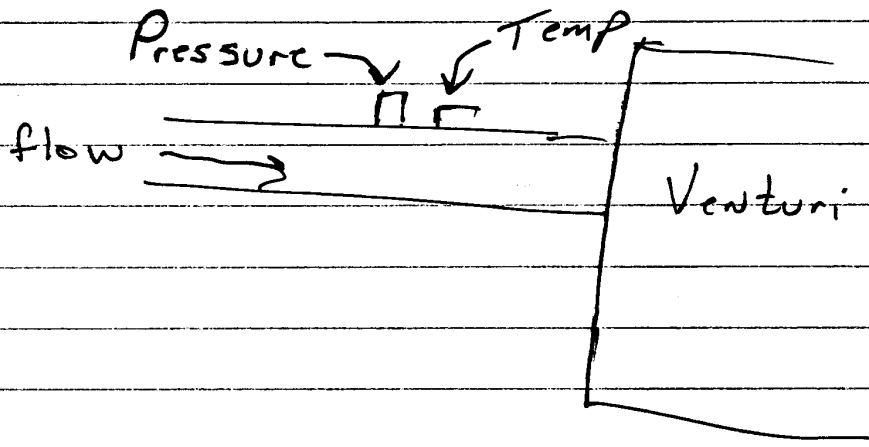 Pressure
Temp
flow
Venturi